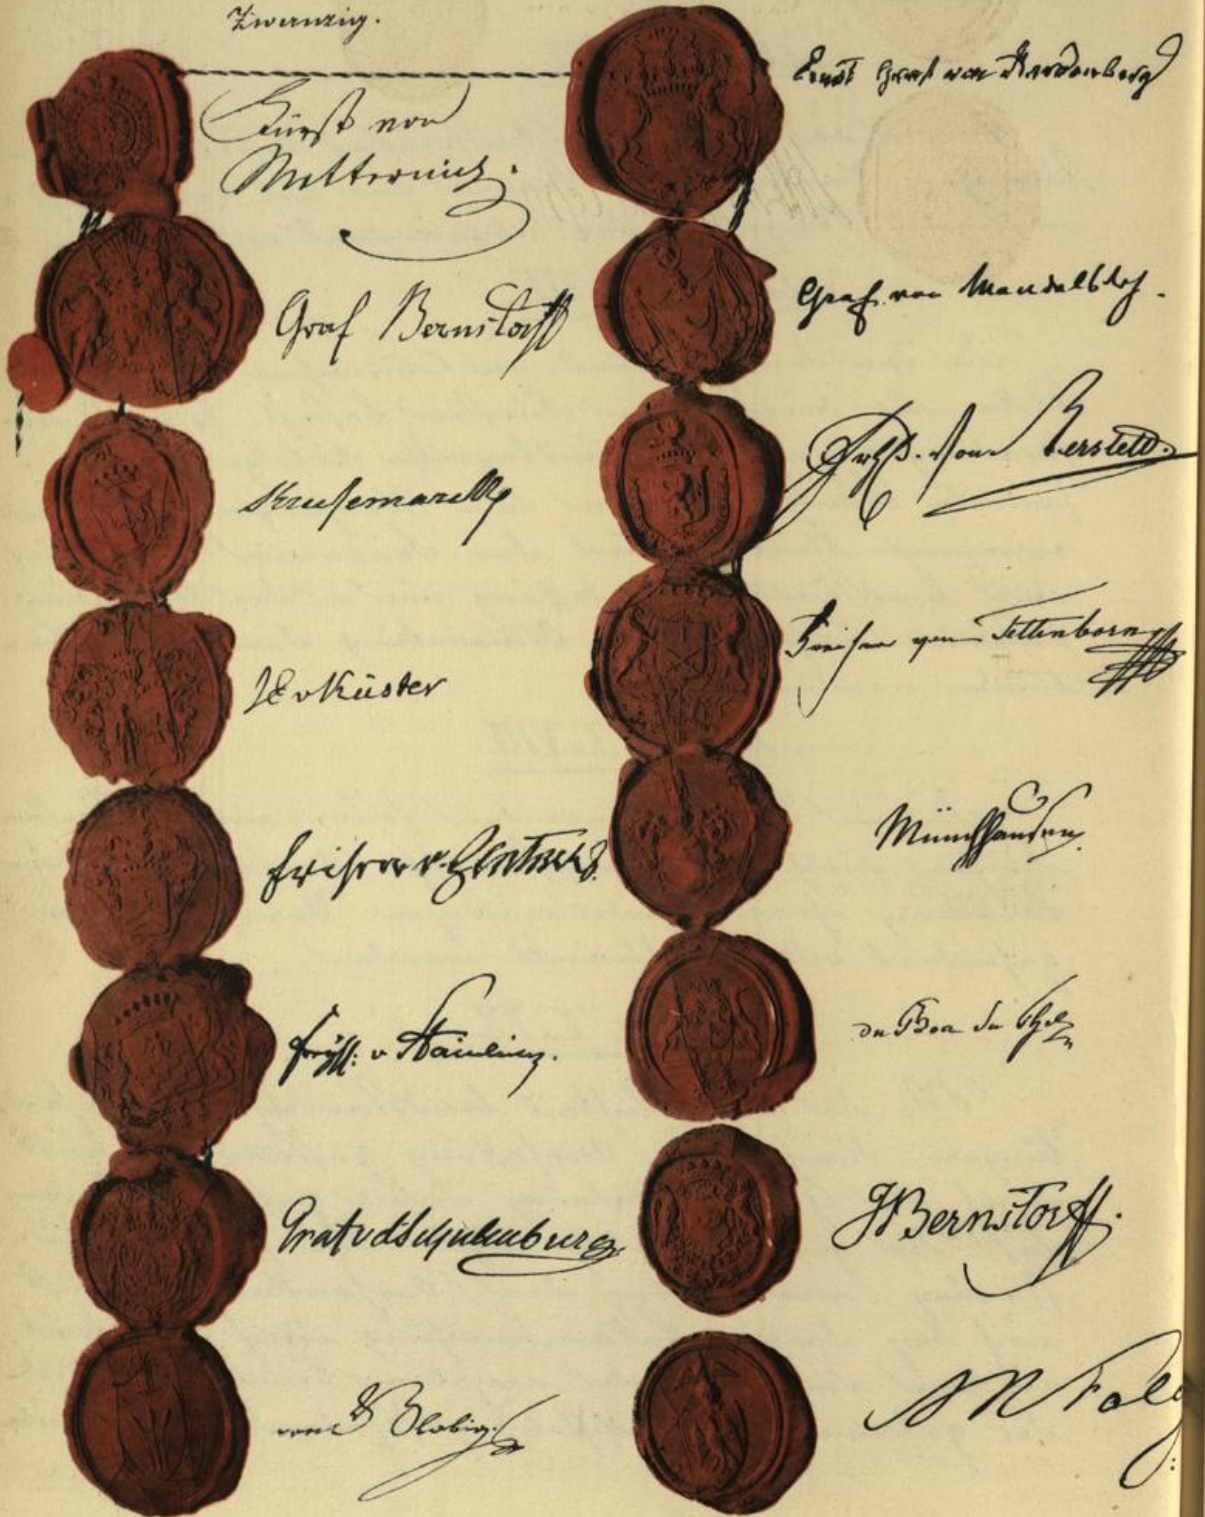 Zwanzig.
Fürst von
Metternich.
Graf Bernstorff
Krusemarck
JE v Küster
Freiherr v. Zentner
Freyh: v Stainlein.
Graf v d Schulenburg
von Globig
Ernst Graf von Hardenberg
Graf von Mandelsloh.
Frhr. von Berstett.
Freiherr von Tettenborn
Münchhausen
du Bos du Thil
JBernstorff.